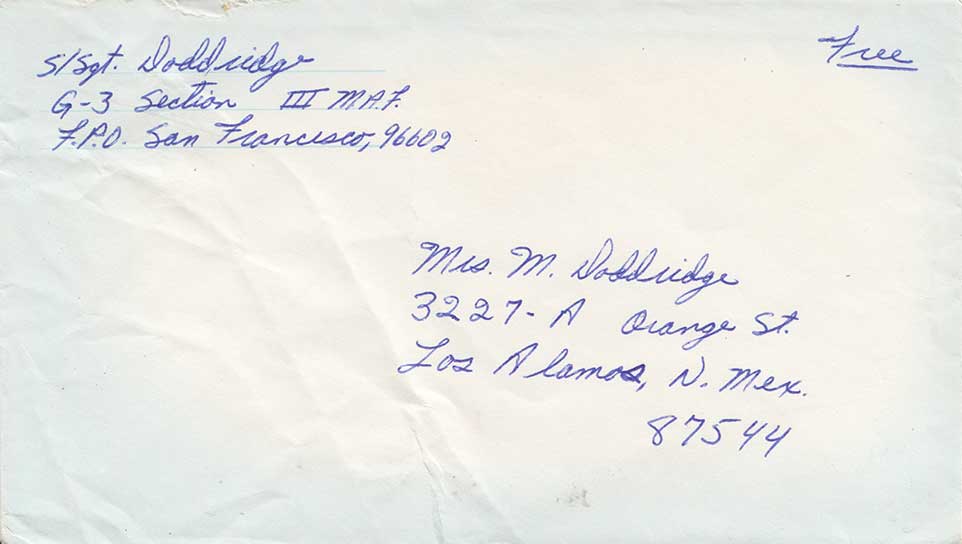 S/Sgt. Doddridge
G-3 Section III M.A.F.
F.P.O. San Francisco, 96602
Free
Mrs. M. Doddridge
3227-A Orange St.
Los Alamos, N. Mex.
87544